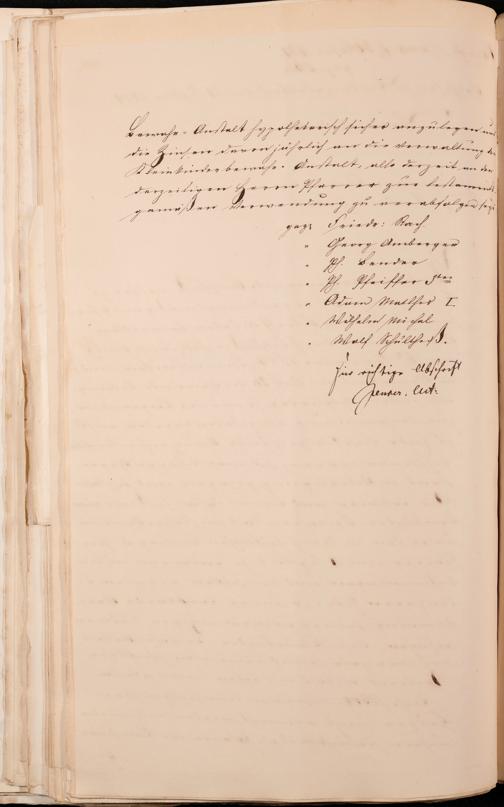 Bewahr-Anstalt hypothekarisch sicher anzulegen und
die Zinsen davon jährlich an die Verwaltung der
Kleinkinderbewahr-Anstalt, also derzeit an den
derzeitigen Herrn Pfarrer zur testaments
gemäßen Verwendung zu verabfolgen sei.
gez: Friedr: Rach
" Georg Amberger
" Ph. Bender
" Ph. Pfeiffer 3ter
" Adam Matthes I.
" Wilhelm Michel
" Wolf Schultheiß.
Für richtige Abschrift